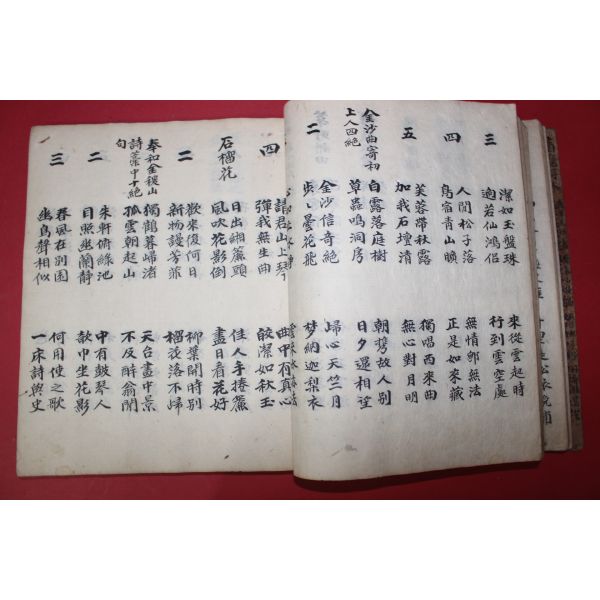 三
潔如玉盤珠 來從雲起時
逈若仙鴻侶 行到雲空處
四
人閒松子落 無情郎無法
鳥宿青山暝 正是如來藏
五
芙蓉帶秋露 獨唱西來曲
加我石壇清 無心對月明
金沙曲寄初
上人四絶
白露落庭樹 朝携故人別
草蟲鳴洞房 日夕還相望
二
金沙信奇絶 歸心天竺月
步〻曇花飛 梦納迦梨衣
四
請君山上琴 曲中有真心
彈我無生曲 皎潔如秋玉
石榴花
日出緗簾頭 佳人手捲簾
風吹花影倒 盡日看花好
二
歡來復何日 柳葉開時別
新物謾芳菲 榴花落不歸
奉和金稷山
詩 中十絶
句
獨鶴暮歸渚 天台畫中景
孤雲朝起山 不及醉翁閒
二
朱軒俯綠池 中有鼓琴人
日照幽蘭靜 欹巾坐花影
三
春風在別園 何用使之歌
幽鳥聲相似 一床詩與史